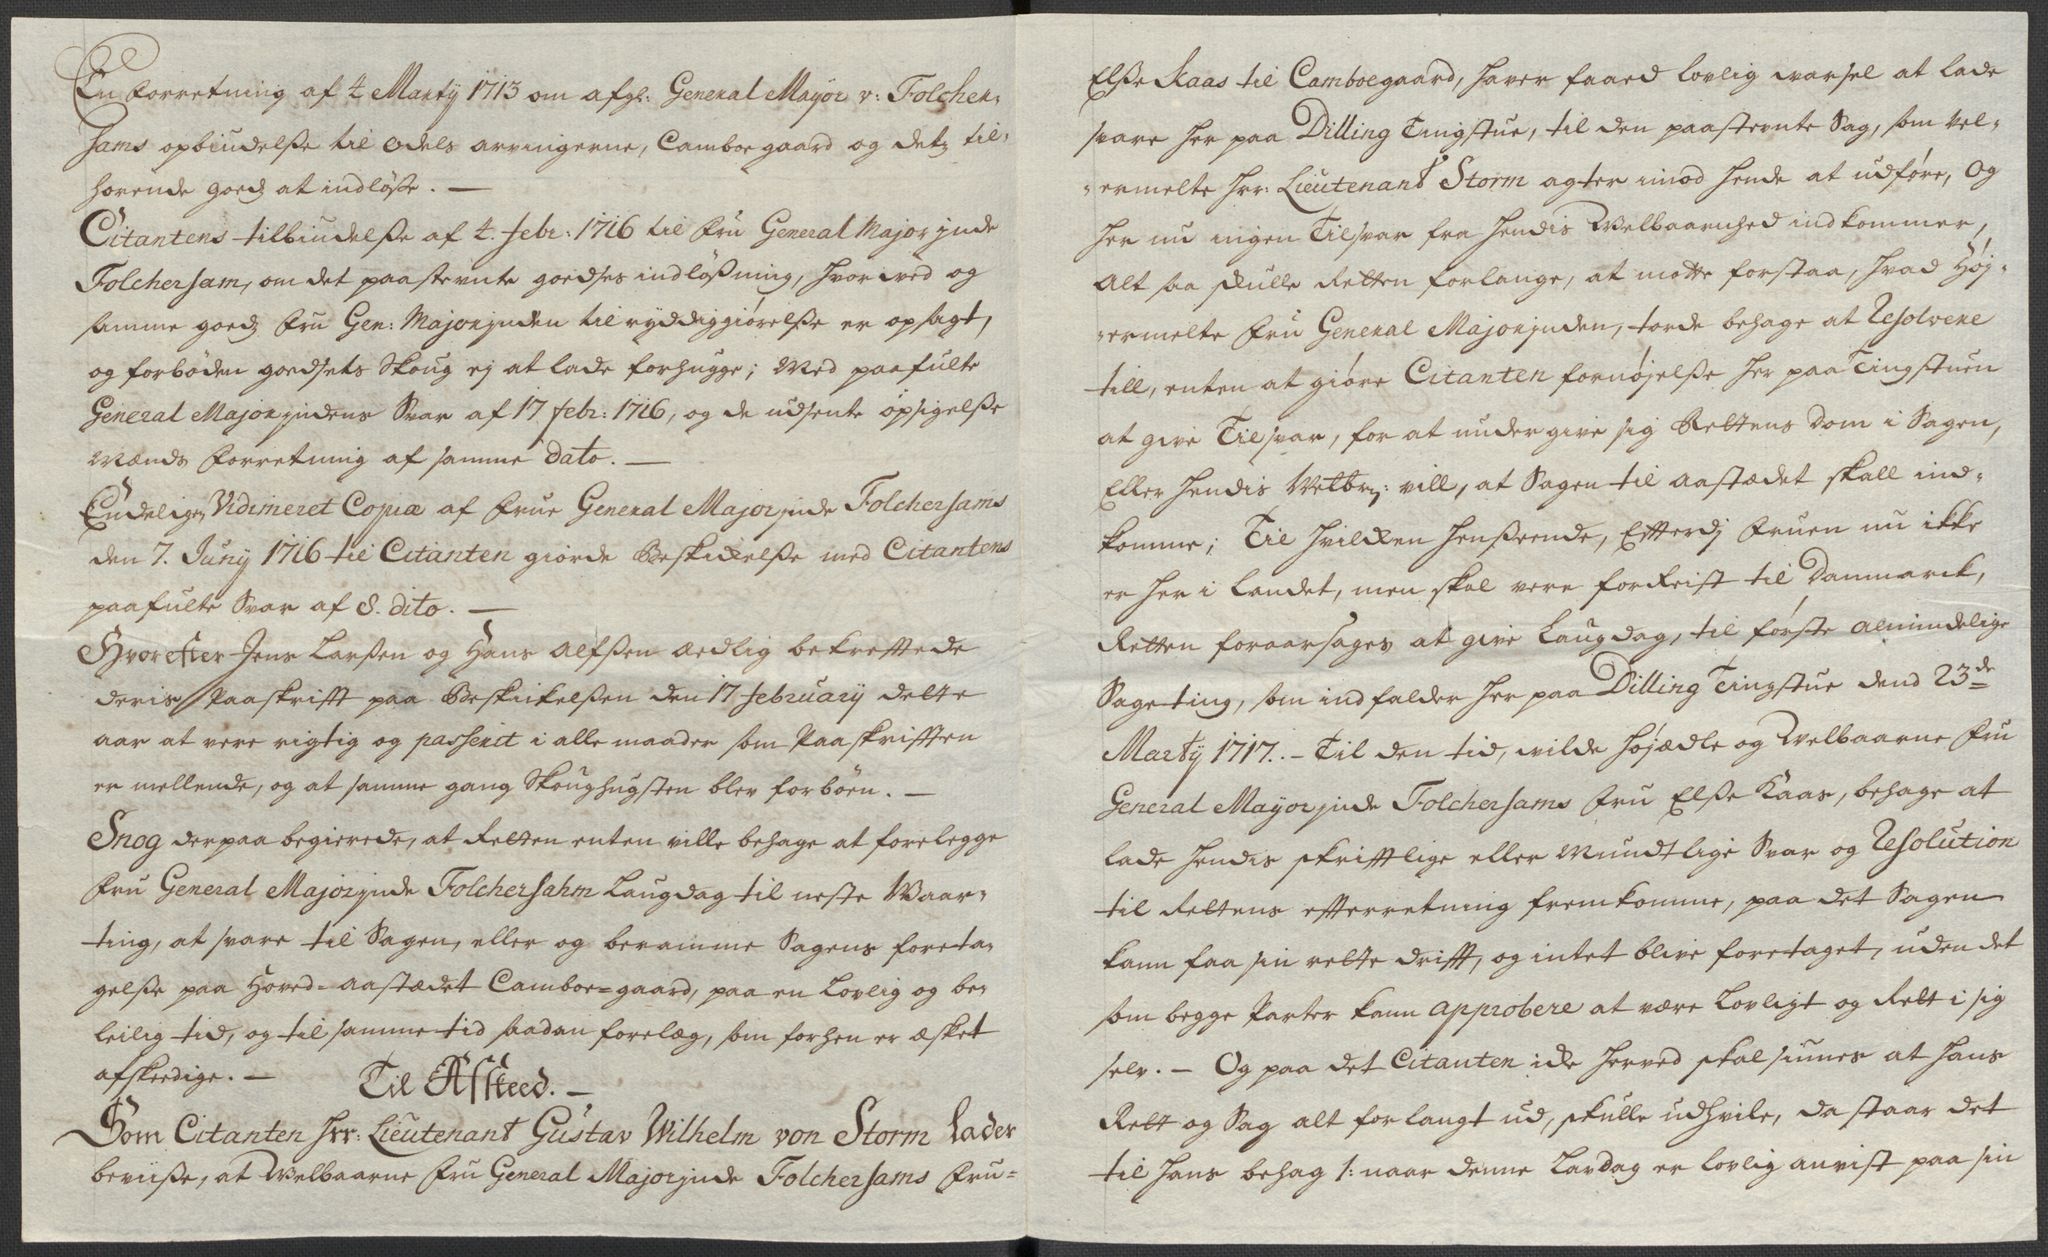 En Forretning af 4 Marty 1713 om afgl: General Mayor v: Folcher,
sams opbiudelße til odels arvingerne, Camboegaard og detz til,
hørende goedz at indløße. —
Citantens tilbiudelße af 4. febr: 1716 til Fru General Majorjnde
Folchersam, om det paastevnte goedses indløßning, hvorved og
samme goedz Fru Gen: Majorjnden til ryddiggiørelße er opsagt,
og forbøden goedsets Skoug ej at lade forhugge; Med paafulte
General Majorjndens Svar af 17 febr: 1716, og de udsente opsigelße
Mænds Forretning af samme dato. —
Endelig, Vidimeret Copiæ af Frue General Majorjnde Folchersams
den 7. Juny 1716 til Citanten giorde Beskikelße med Citantens
paafulte Svar af 8. dito. —
Hvorefter Jens Larßen og Hans Alfßen ædlig bekreftede
deris Paaskrifft paa Beskikelßen den 17 february dette
aar at vere rigtig og passerit i alle maader som Paaskrifften
er mellende, og at samme gang Skoughugsten blev forböen. —
Snog derpaa begierede, at Retten enten ville behage at forelegge
Fru General Majorjnde Folchersahm Laugdag til neste Waar,
ting, at svare til Sagen, eller og beramme Sagens foreta,
gelße paa Hoved-aastædet Camboe=gaard, paa en Lovlig og be,
leilig tid, og til samme tid saadan forelæg, som forhen er æsket
afskeedige. —
Til Afskeed. —
Som Citanten Hrr: Lieutenant Gustav Wilhelm von Storm lader
beviiße, at Welbaarne Fru General Majorjnde Folchersams Fru=
Elße Kaas til Camboegaard, haver faaed lovlig varsel at lade
svare her paa Dilling Tingstue, til den paastevnte Sag, som vel,
,ermelte Hrr: Lieutenant Storm agter imod hende at udføre, Og
her nu ingen Tilsvar fra hendis Welbaarnhed indkommer,
Alt saa skulle Retten forlange, at motte forstaa, hvad Høj,
,ermelte Fru General Majorjnden, torde behage at Resolvere
till, enten at giøre Citanten fornøjelße her paa Tingstuen
at give Tilsvar, for at undergive sig Rettens Dom i Sagen,
Eller hendis Welbrn: vill, at Sagen til aastædet skall ind,
komme; Til hvilken henßeende, Efterdj Fruen nu ikke
er her i Landet, men skal vere forReist til Danmarck,
Retten foraarsages at give Laugdag, til første almindelige
Sageting, som indfalder her paa Dilling Tingstue dend 23de
Marty 1717. - Til den tid, vilde Højædle og Welbaarne Fru
General Mayorjnde Folchersams Fru Elße Kaas, behage at
lade hendis skrifftlige eller Mundtlige Svar og Resolution
til Rettens efterretning fremkomme, paa det Sagen
kann faa sin rette drifft, og intet blive foretaget, uden det
som begge Parter kann approbere at være Lovligt og Rett i sig
selv. — Og paa det Citanten icke herved skal siunes at hans
Rett og Sag alt forlangt ud, skulle udhvile, da staar det
til hans behag /: naar denne Lavdag er lovlig anvist paa sin